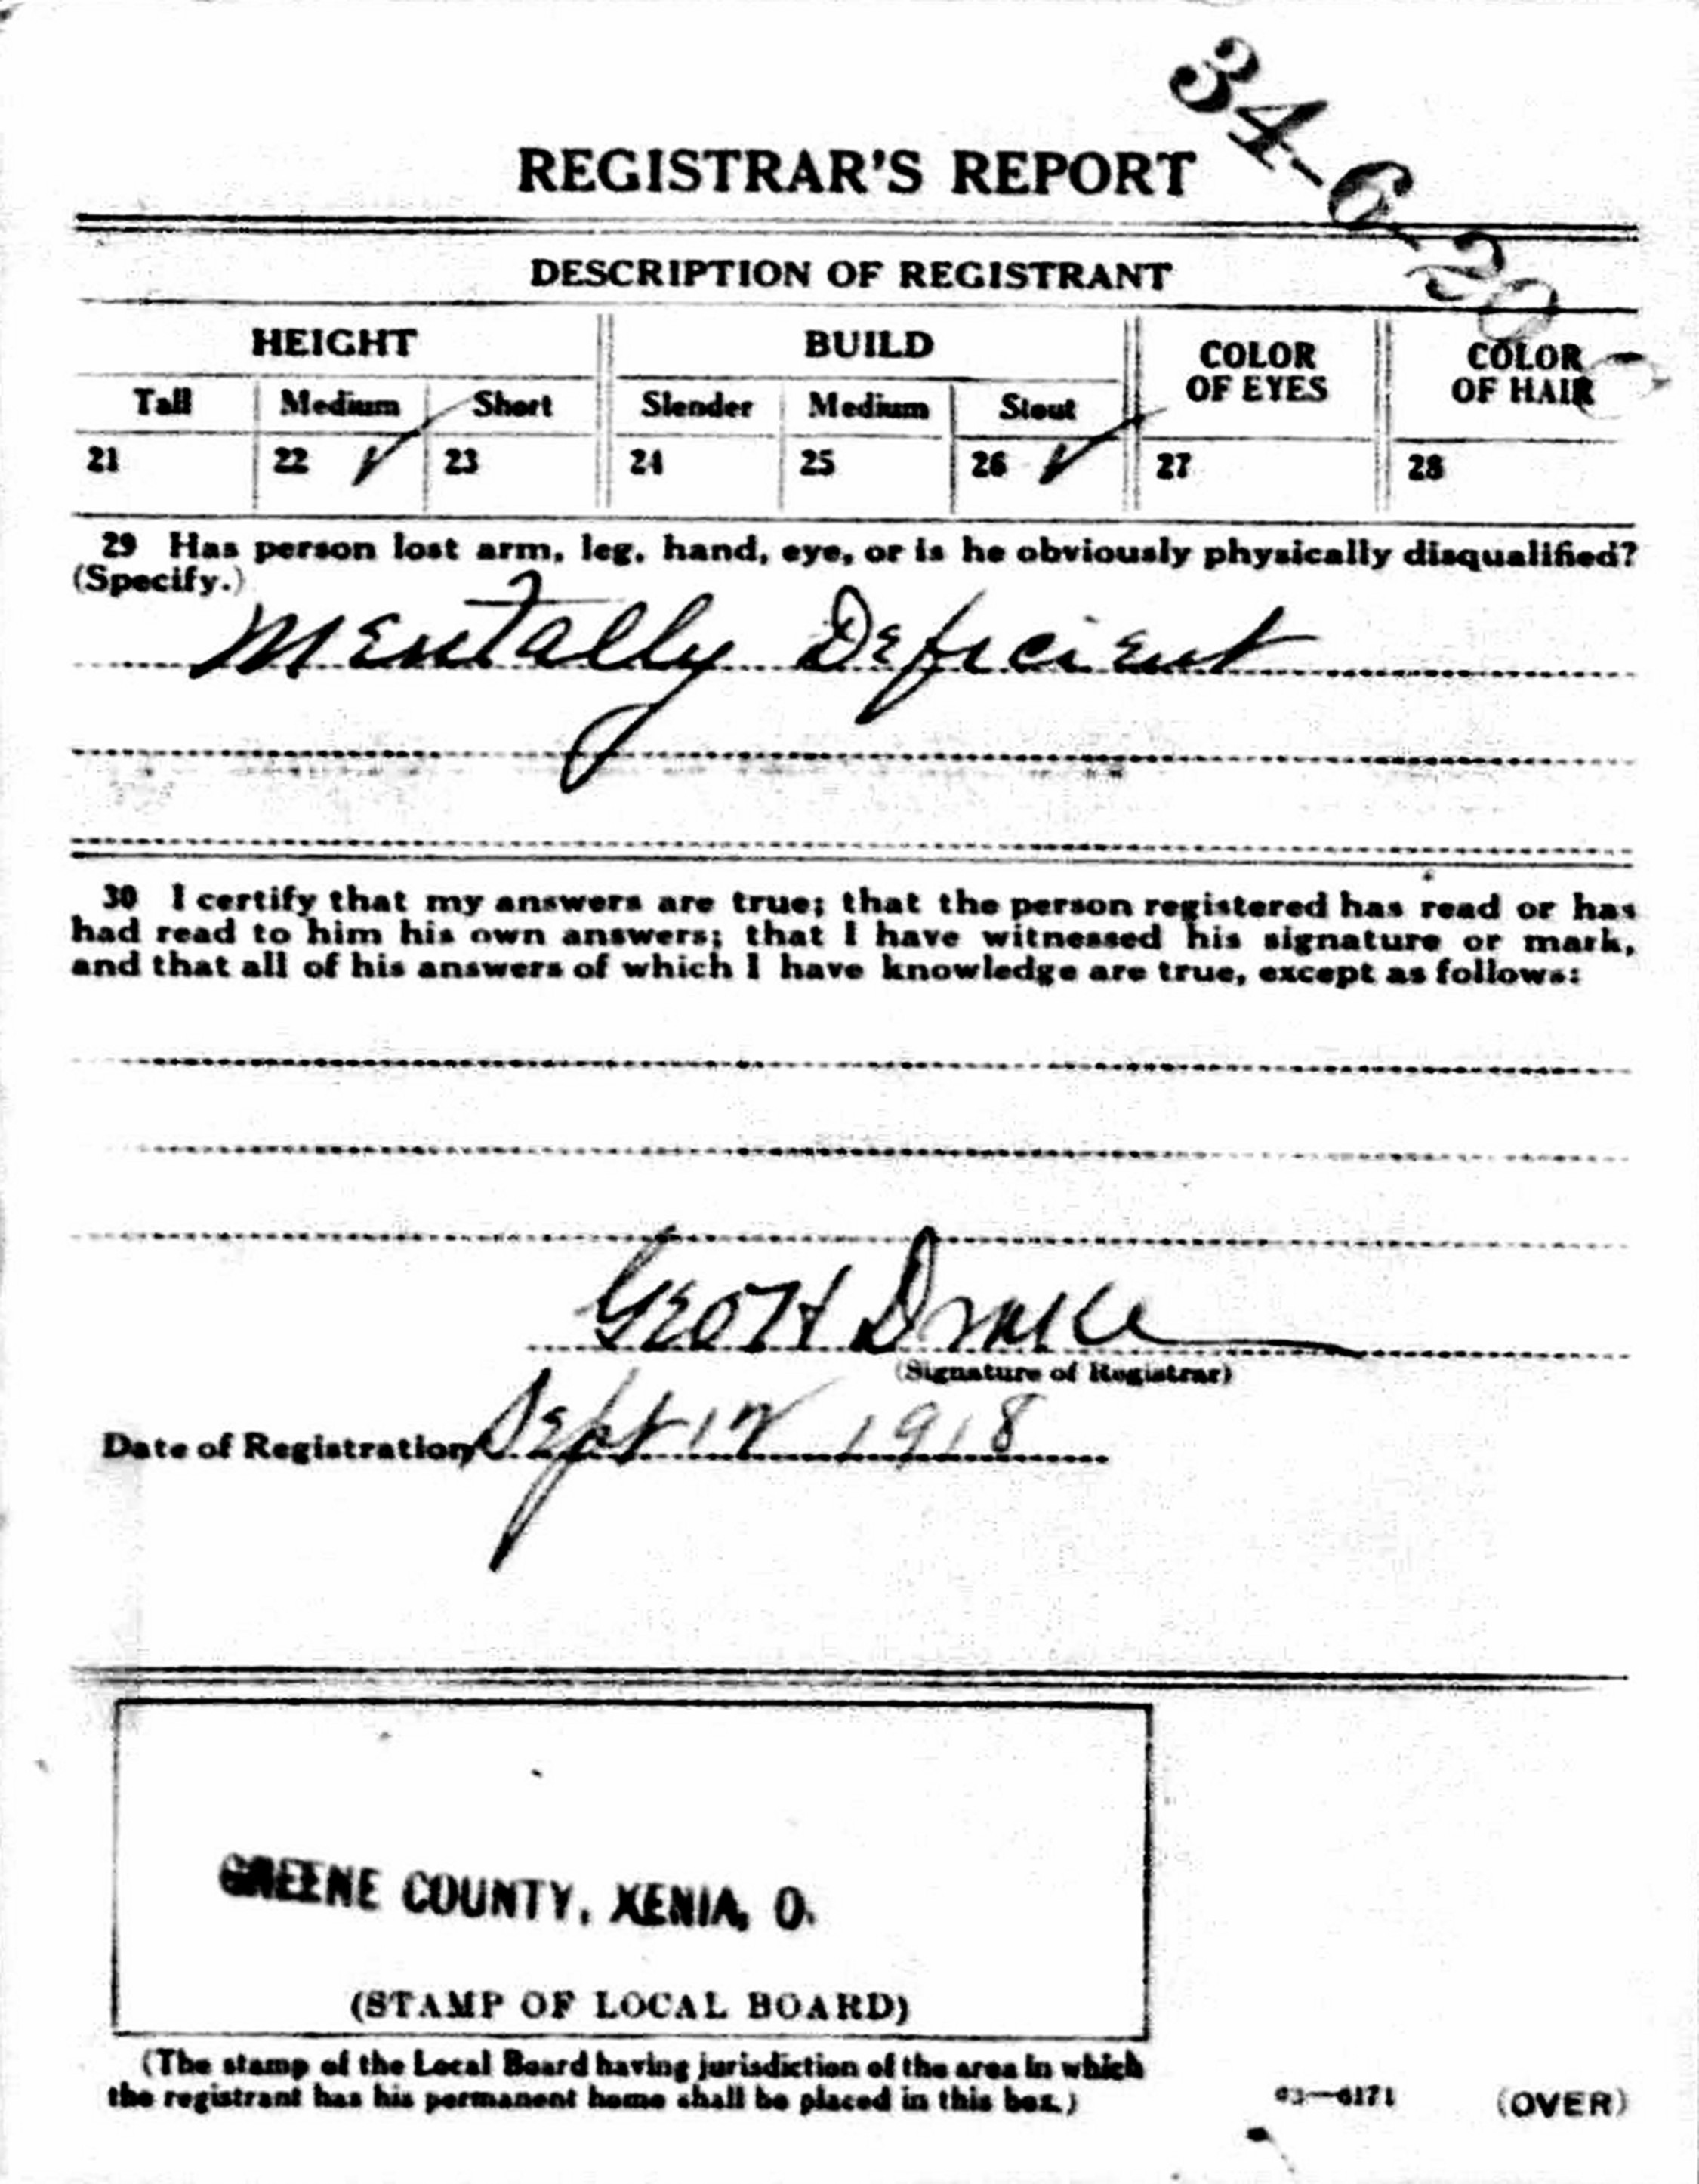 34-6-20 C
REGISTRAR'S REPORT
DESCRIPTION OF REGISTRANT
HEIGHT BUILD COLOR OF EYES COLOR OF HAIR
Tall Medium Short Slender Medium Stout
21 22 ✓ 23 24 25 26 ✓ 27 28
29 Has person lost arm, leg, hand, eye, or is he obviously physically disqualified?
(Specify.)
Mentally Deficient
30 I certify that my answers are true; that the person registered has read or has
had read to him his own answers; that I have witnessed his signature or mark,
and that all of his answers of which I have knowledge are true, except as follows:
Geo H Drake
(Signature of Registrar)
Date of Registration Sept 12 1918
GREENE COUNTY, XENIA, O.
(STAMP OF LOCAL BOARD)
(The stamp of the Local Board having jurisdiction of the area in which
the registrant has his permanent home shall be placed in this box.)
03—6171 (OVER)